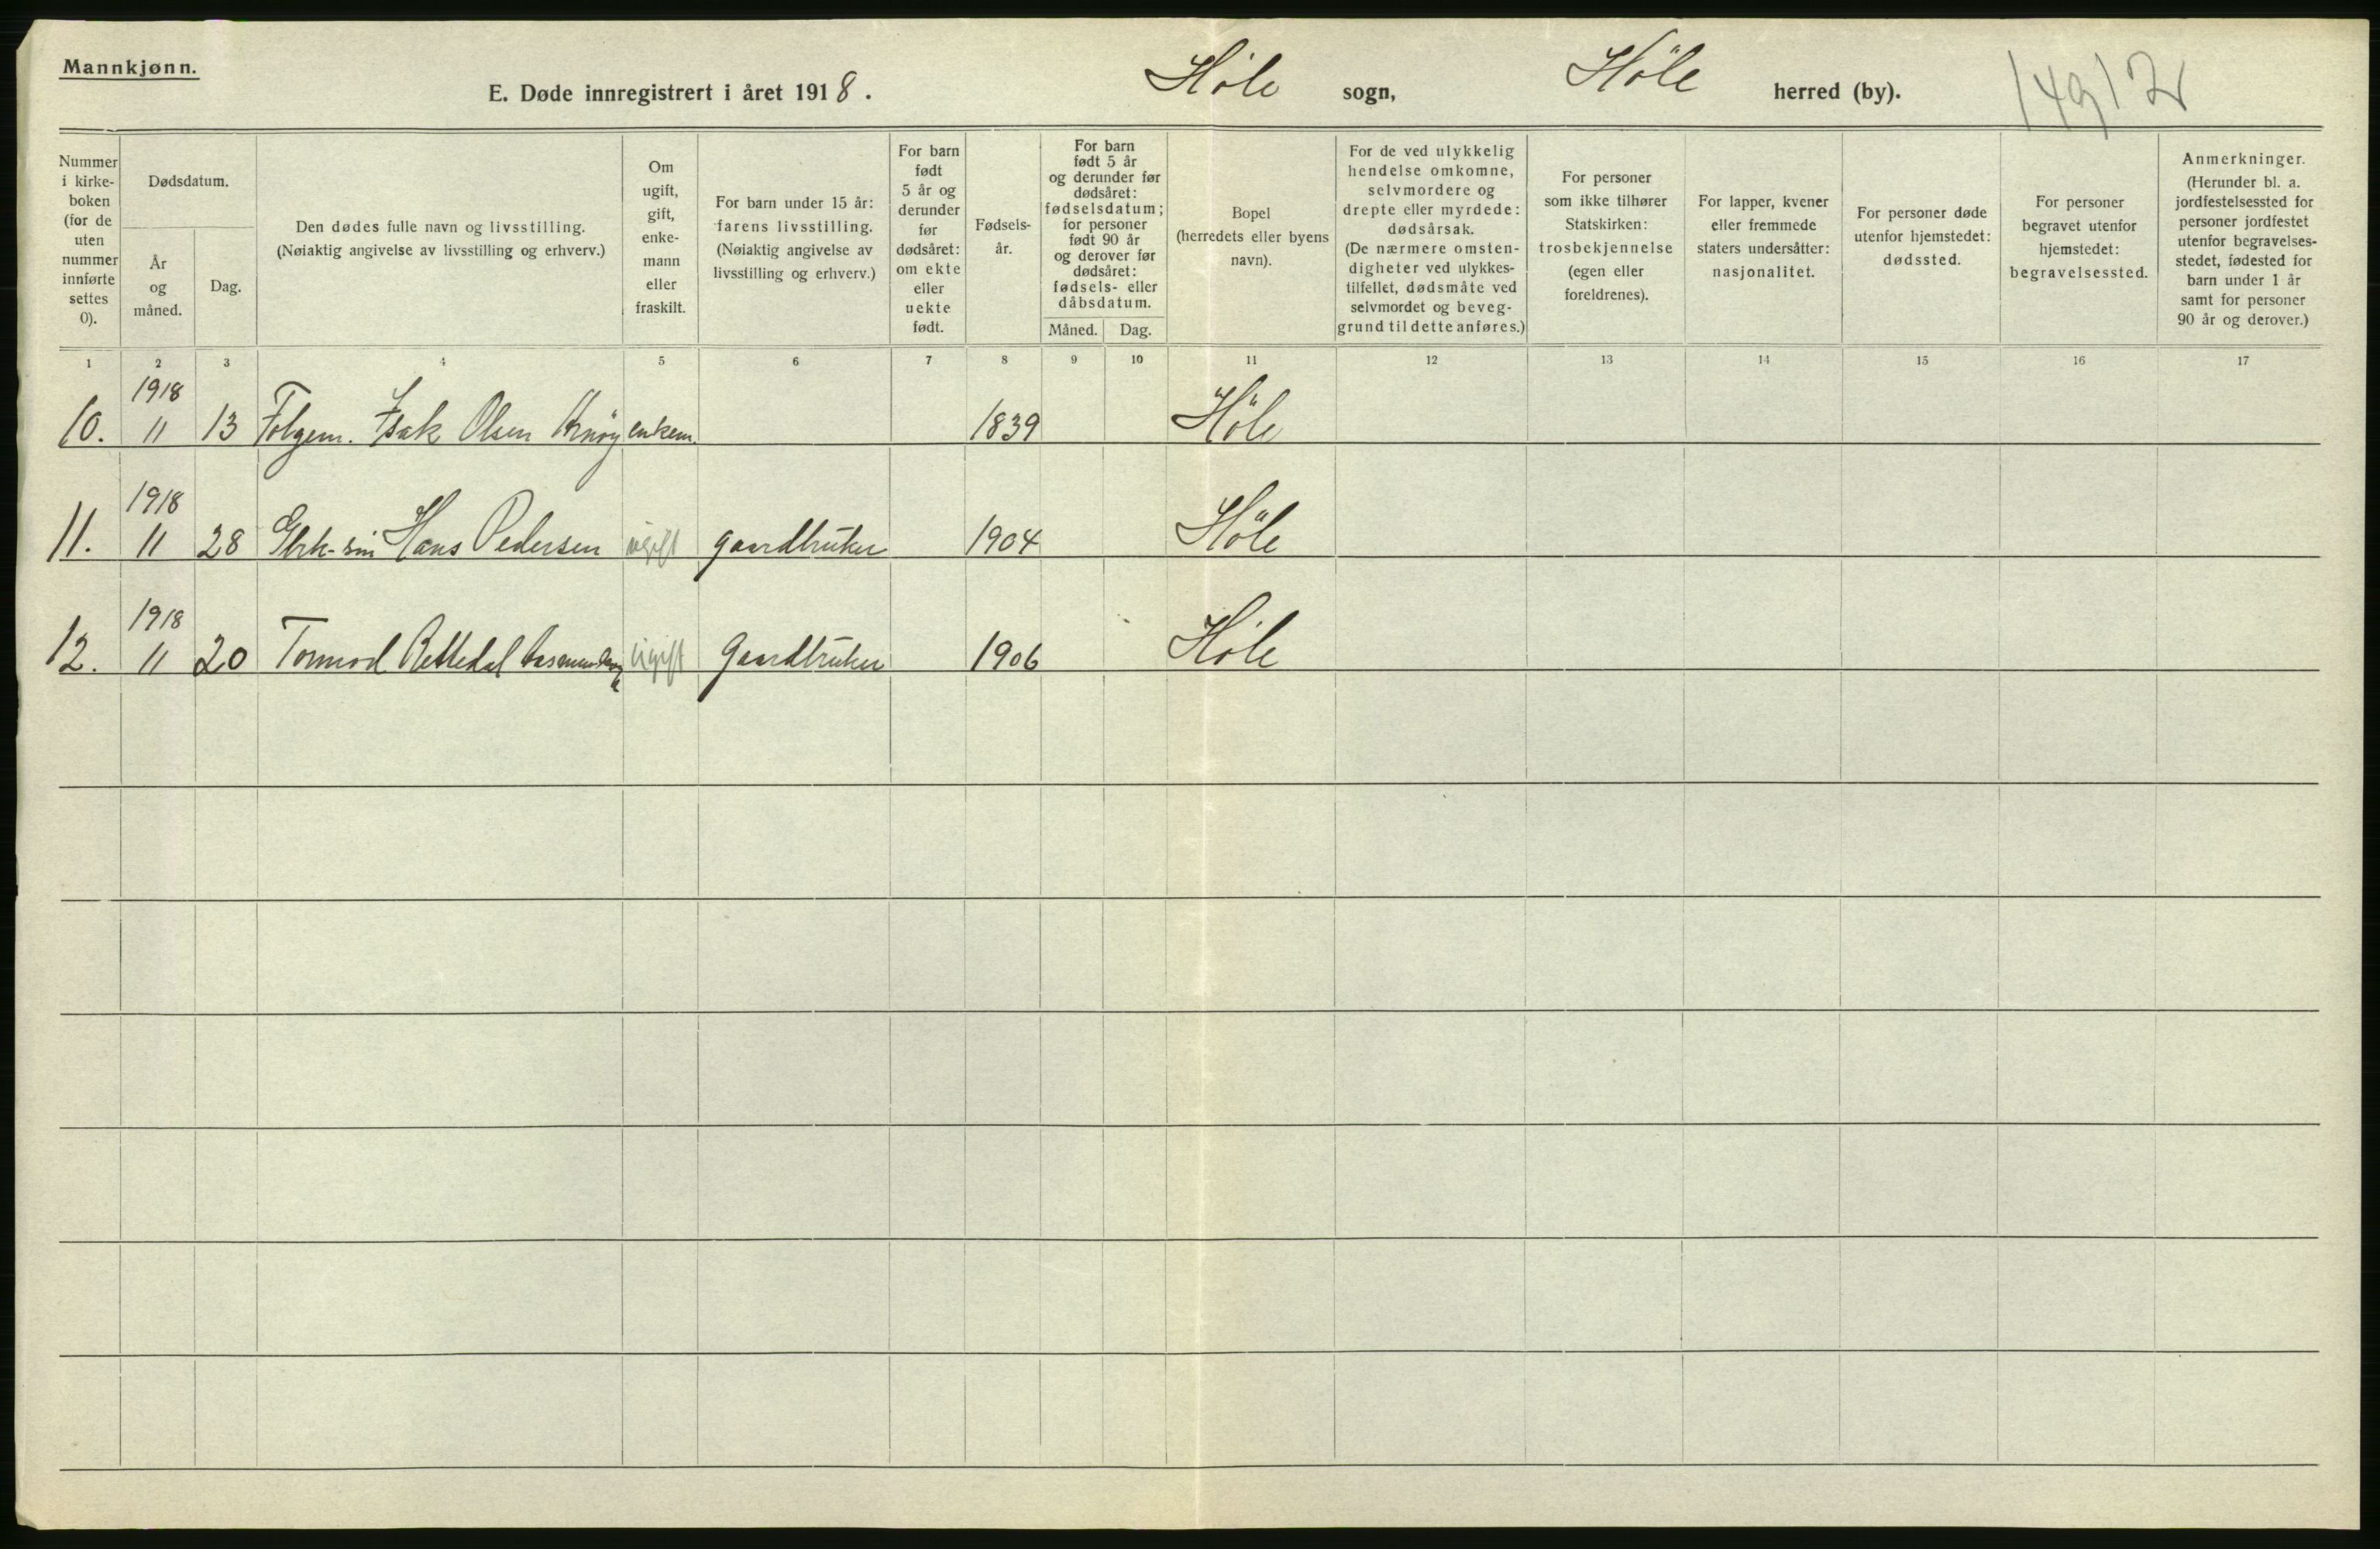 Mannkjønn.
E. Døde innregistrert i året 1918. Höle sogn, Höle herred (by). 149 12
Nummer i kirke- boken (for de uten nummer innførte settes 0).
Dødsdatum.
År og måned.
Dag.
Den dødes fulle navn og livsstilling.
(Nøiaktig angivelse av livsstilling og erhverv.)
Om ugift, gift, enke- mann eller fraskilt.
For barn under 15 år: farens livsstilling. (Nøiaktig angivelse av livsstilling og erhverv.)
For barn født 5 år og derunder før dødsåret: om ekte eller uekte født.
Fødsels- år.
For barn født 5 år og derunder før dødsåret: fødselsdatum; for personer født 90 år og derover før dødsåret: fødsels- eller dåbsdatum.
Måned. Dag.
Bopel (herredets eller byens navn).
For de ved ulykkelig hendelse omkomne, selvmordere og drepte eller myrdede: dødsårsak. (De nærmere omsten- digheter ved ulykkes- tilfellet, dødsmåte ved selvmordet og beveg- grund til dette anføres.)
For personer som ikke tilhører Statskirken: trosbekjennelse (egen eller foreldrenes).
For lapper, kvener eller fremmede staters undersåtter: nasjonalitet.
For personer døde utenfor hjemstedet: dødssted.
For personer begravet utenfor hjemstedet: begravelsessted.
Anmerkninger. (Herunder bl. a. jordfestelsessted for personer jordfestet utenfor begravelses- stedet, fødested for barn under 1 år samt for personer 90 år og derover.)
1 2 3 4 5 6 7 8 9 10 11 12 13 14 15 16 17
1918
10. 11 13 Folgem. Isak Olsen enkem. 1839 Höle
1918
11. 11 28 Gbrk-sön Hans Pedersen ugift gaardbruker 1904 Höle
1918
12. 11 20 Tormod Rettedal ugift Gaardbruker 1906 Höle